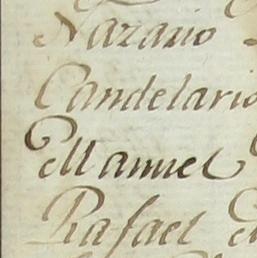 Nazario
Candelario
Manuel
Rafael